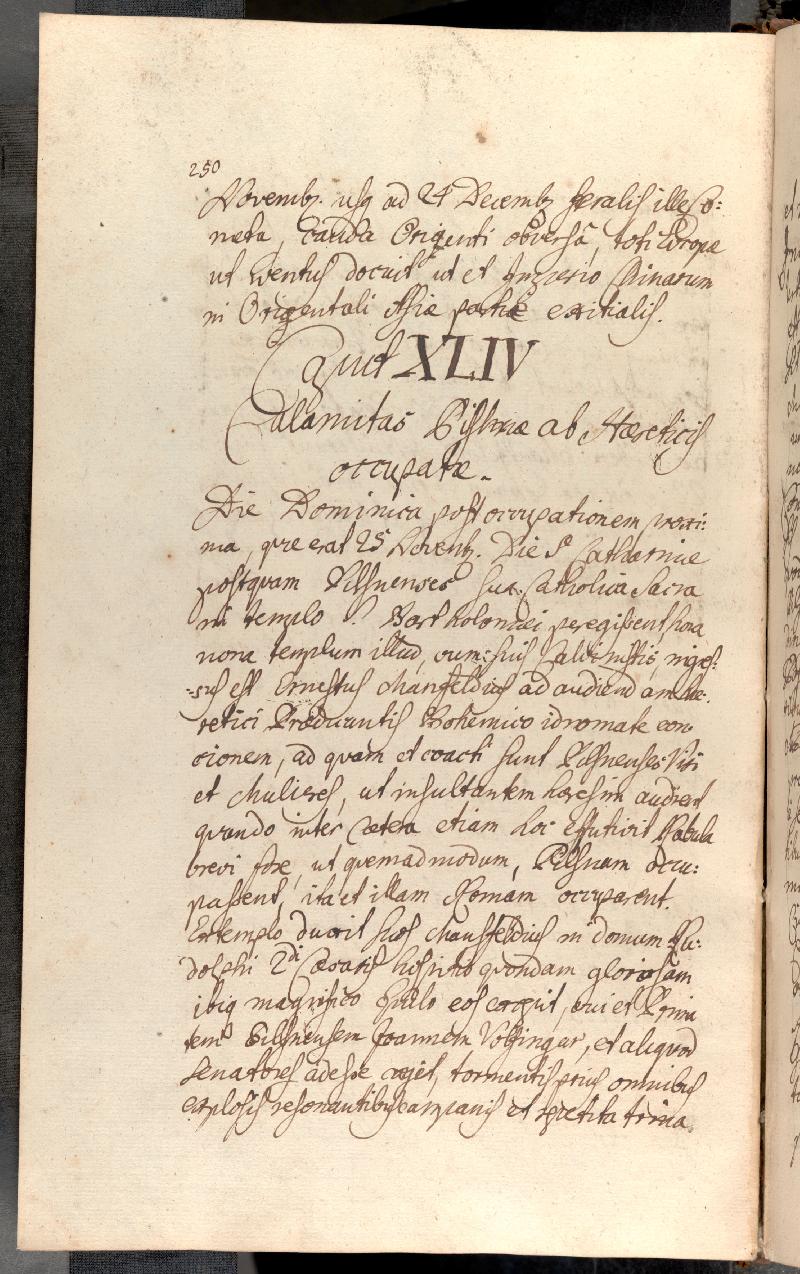 250
Novemb. usq ad 24 Decemb feralis ille Co:
meta, cauda Orienti obversâ, toti Europæ
ut eventus docuit ut et Imperio Chinarum
in Orientali Asiæ parte exitialis.
Caput XLIV
Calamitas Pilsnæ ab Hæreticis
occupatæ.
Die Dominica post occupationem proxi:
ma, quæ erat 25 Novemb. Die S. Catharinæ
postquam Pilsnenses sua Catholica Sacra
in templo S. Bartholomæi peregissent, hora
nona templum illud, cum suis Calvinistis, ingres:
-sus est Ernestus Mansfeldius ad audiendam hæ:
retici Prædicantis Bohemico idiomate con
cionem, ad quam et coacti sunt Pilsnenses Viri
et Mulieres, ut insultantem hæresim audirent
quando inter cætera etiam hoc effutivit Rabula
brevi fore, ut quemadmodum, Pilsnam occu:
passent, ita et illam Romam occuparent.
Extemplo duxit suos Mansfeldius in domum Ru:
dolphi 2di Cæsaris hospitio quondam gloriosam
ibiq magnifico epulo eos excepit, cui et Prima
tem Pilsnensem Joannem Volfingar, et aliquod
Senatores adesse coget, tormentis prius omnibus
explosis resonantibus campanis et repetita trina